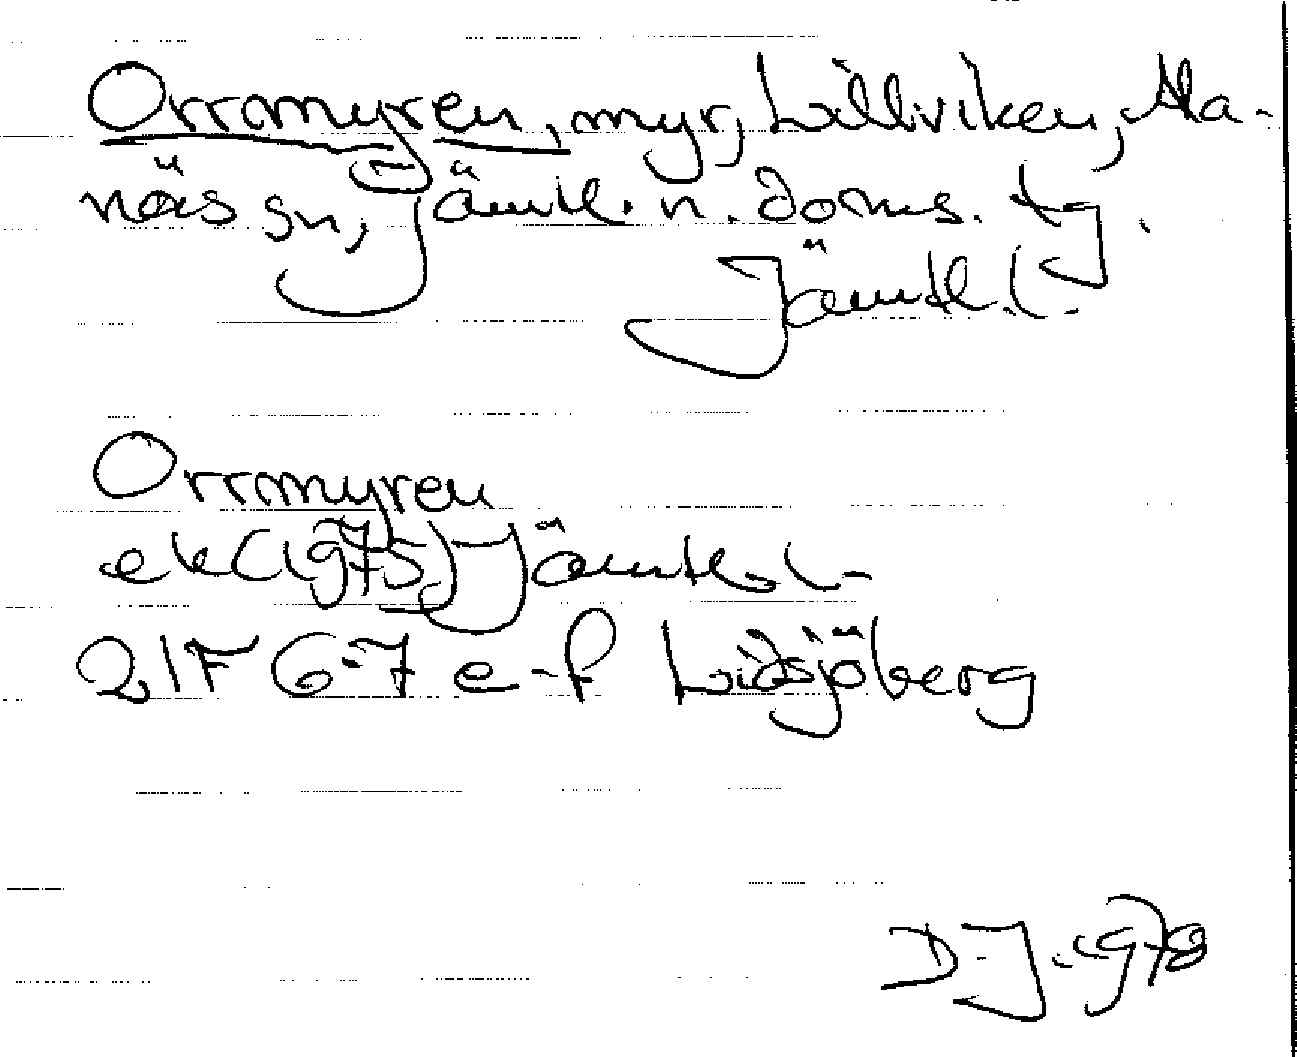 Orrmyren, myr, Lillviken, Ala-
näs sn, Jämtl. n. doms. tg.
Jämtl. l.
Orrmyren
ek (1975) Jämtl. l.
21F 6-7 e-f Lidsjöberg
DJ 1978